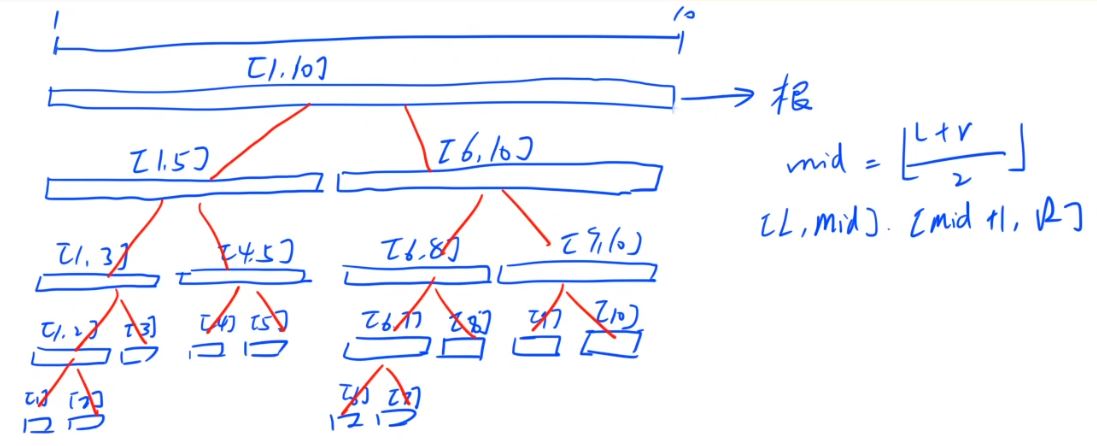 1 10
[1,10]
根
[1,5] [6,10]
mid = ⌊(L+r)/2⌋
[L,mid]. [mid+1,R]
[1,3] [4,5] [6,8] [9,10]
[1,2] [3] [4] [5] [6,7] [8] [9] [10]
[1] [2] [6] [7]